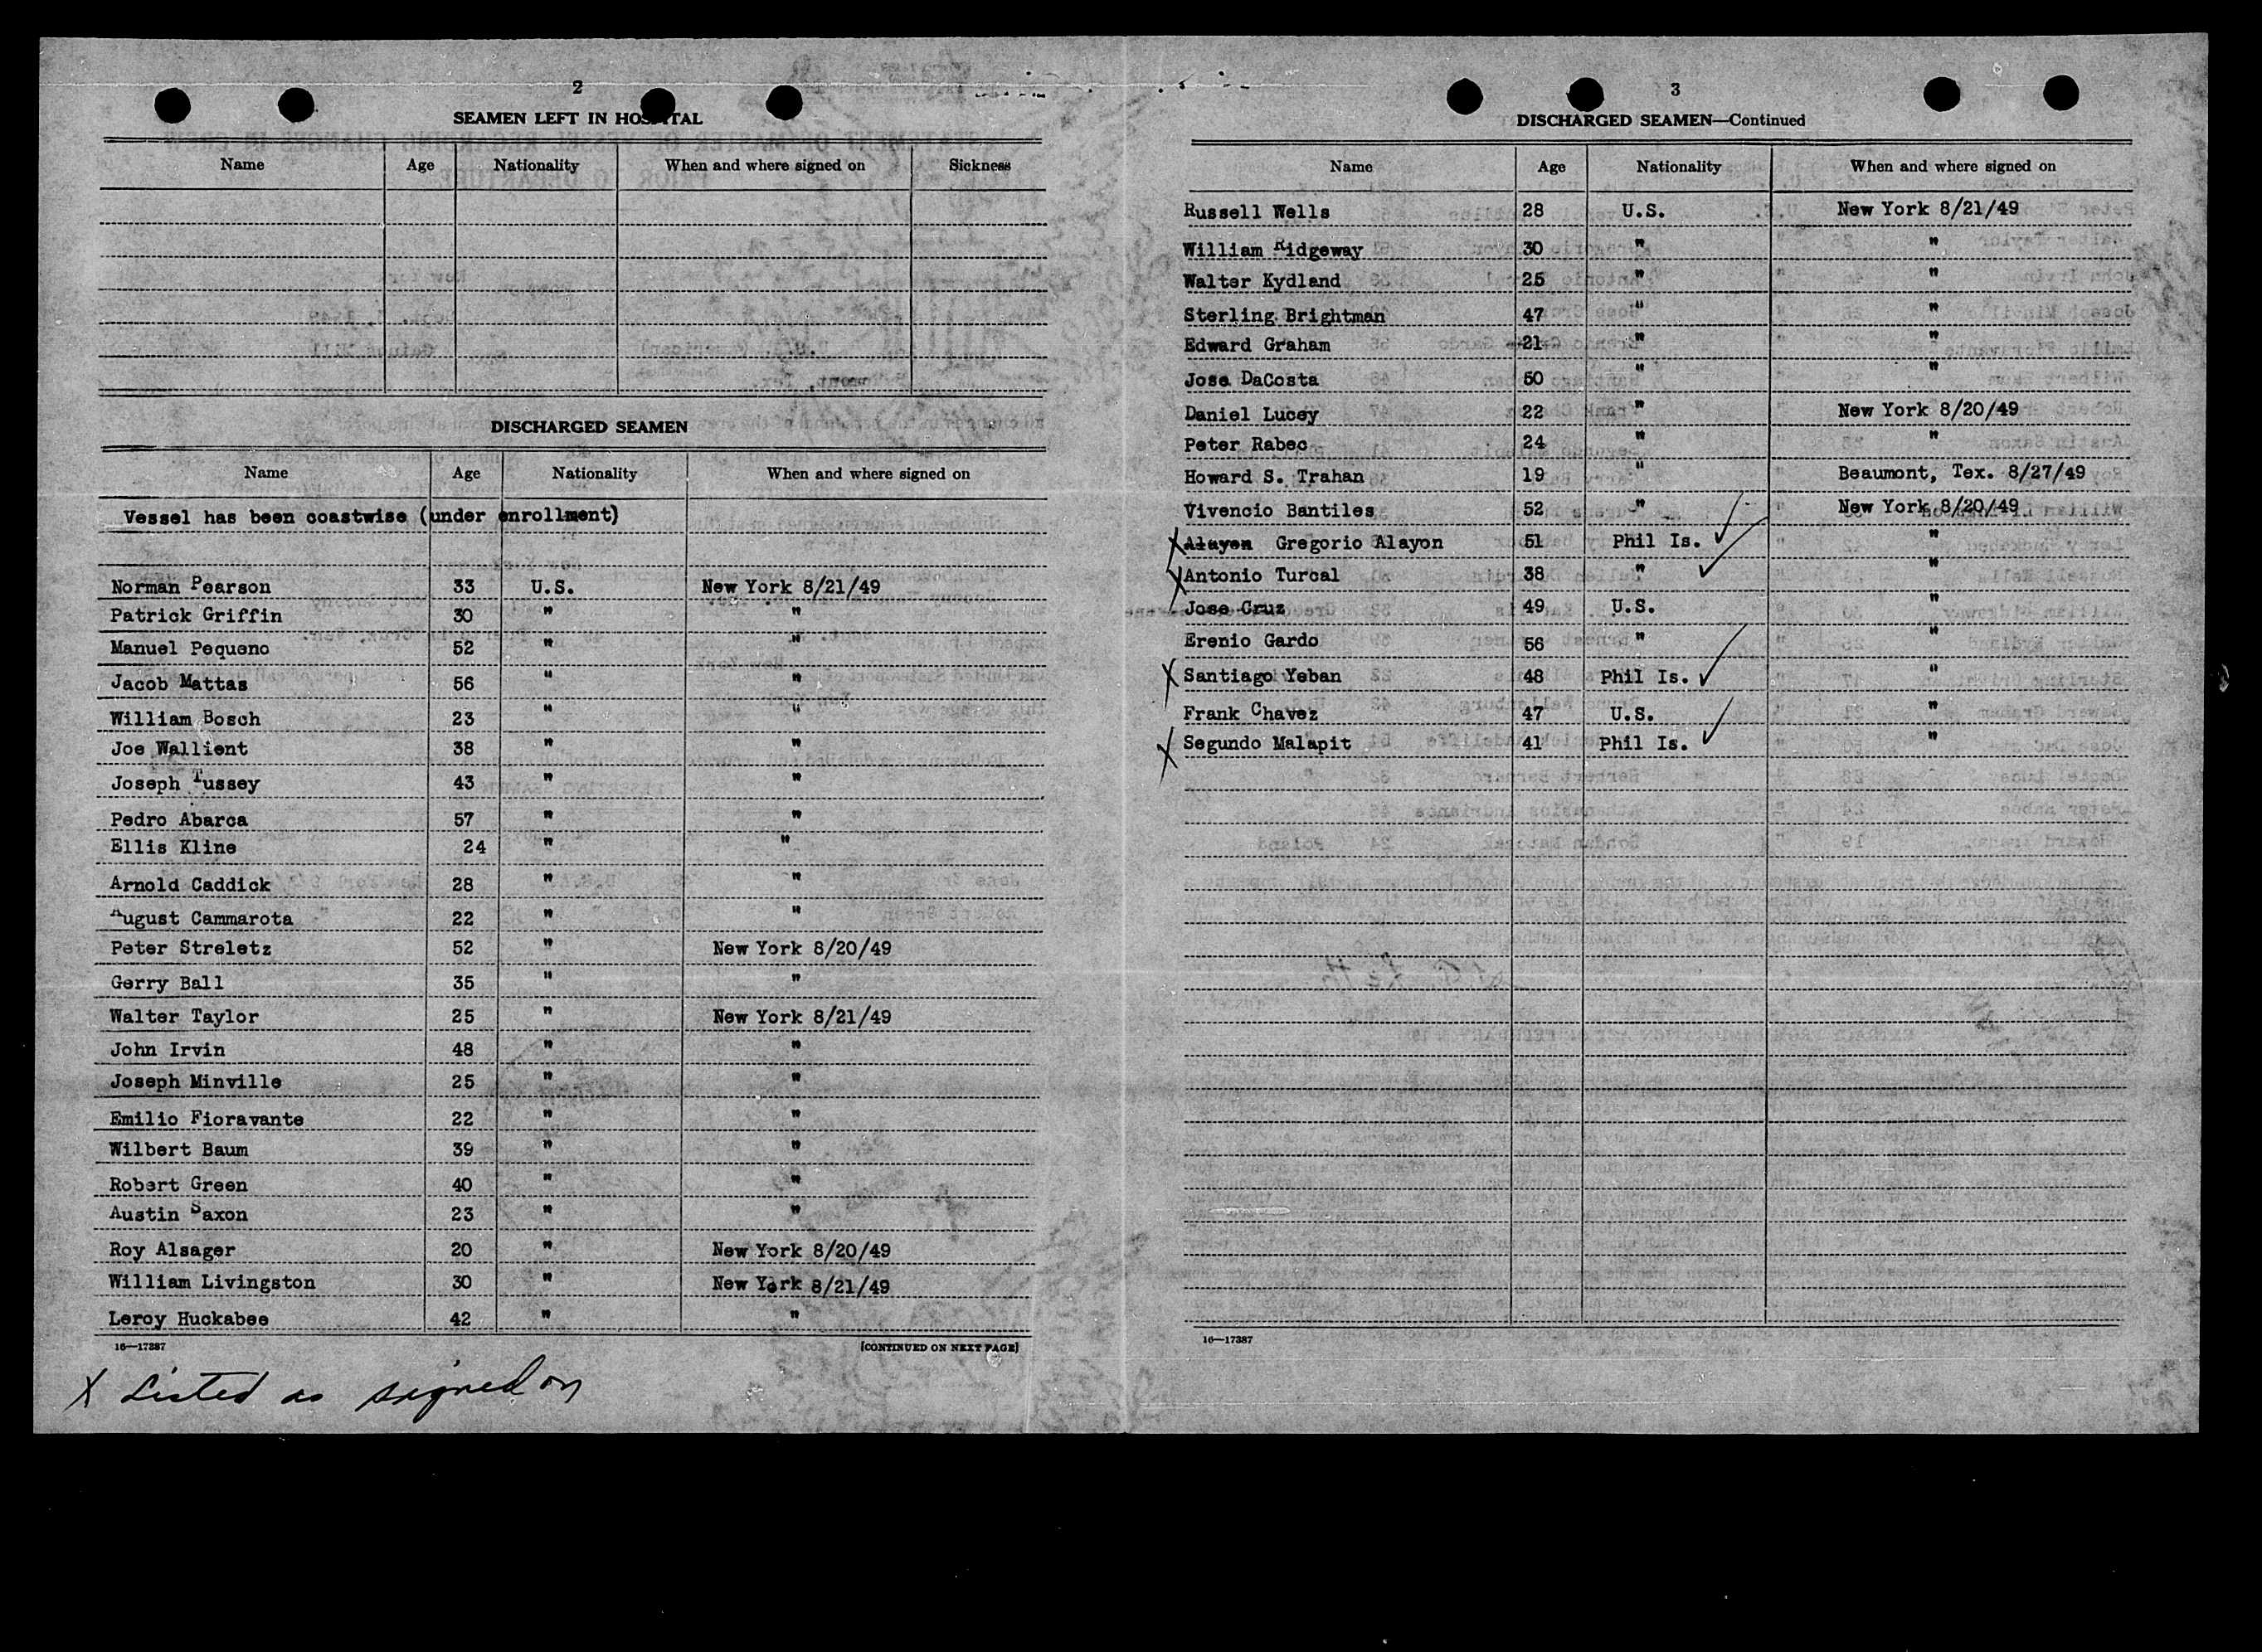 2
SEAMEN LEFT IN HOSPITAL
Name Age Nationality When and where signed on Sickness
DISCHARGED SEAMEN
Name Age Nationality When and where signed on
Vessel has been coastwise (under enrollment)
Norman Pearson 33 U.S. New York 8/21/49
Patrick Griffin 30 " "
Manuel Pequeno 52 " "
Jacob Mattas 56 " "
William Bosch 23 " "
Joe Wallient 38 " "
Joseph Tussey 43 " "
Pedro Abarca 57 " "
Ellis Kline 24 " "
Arnold Caddick 28 " "
August Cammarota 22 " "
Peter Streletz 52 " New York 8/20/49
Gerry Ball 35 " "
Walter Taylor 25 " New York 8/21/49
John Irvin 48 " "
Joseph Minville 25 " "
Emilio Fioravante 22 " "
Wilbert Baum 39 " "
Robert Green 40 " "
Austin Saxon 23 " "
Roy Alsager 20 " New York 8/20/49
William Livingston 30 " New York 8/21/49
Leroy Huckabee 42 " "
16—17387 [CONTINUED ON NEXT PAGE]
X Listed as signed on
3
DISCHARGED SEAMEN—Continued
Name Age Nationality When and where signed on
Russell Wells 28 U.S. New York 8/21/49
William Ridgeway 30 " "
Walter Kydland 25 " "
Sterling Brightman 47 " "
Edward Graham 21 " "
Jose DaCosta 50 " "
Daniel Lucey 22 " New York 8/20/49
Peter Rabec 24 " "
Howard S. Trahan 19 " Beaumont, Tex. 8/27/49
Vivencio Bantiles 52 " New York 8/20/49
X Alayon Gregorio Alayon 51 Phil Is. ✓ "
X Antonio Turcal 38 " ✓ "
Jose Cruz 49 U.S. "
Erenio Gardo 56 " "
X Santiago Yeban 48 Phil Is. ✓ "
Frank Chavez 47 U.S. "
X Segundo Malapit 41 Phil Is. ✓ "
16—17387